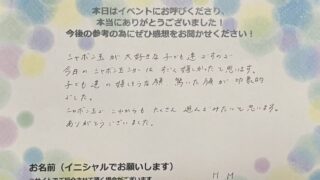 本日はイベントにお呼びくださり、
本当にありがとうございました！
今後の参考の為にぜひ感想をお聞かせください！
シャボン玉が大好きな子ども達ですので
今日のシャボン玉ショーはすごく嬉しかったと思います。
子ども達の嬉しそうな顔 驚いた顔が印象的
でした。
シャボン玉でこれからもたくさん遊んでみたいと思います。
ありがとうございました。
お名前（イニシャルでお願いします）
H M